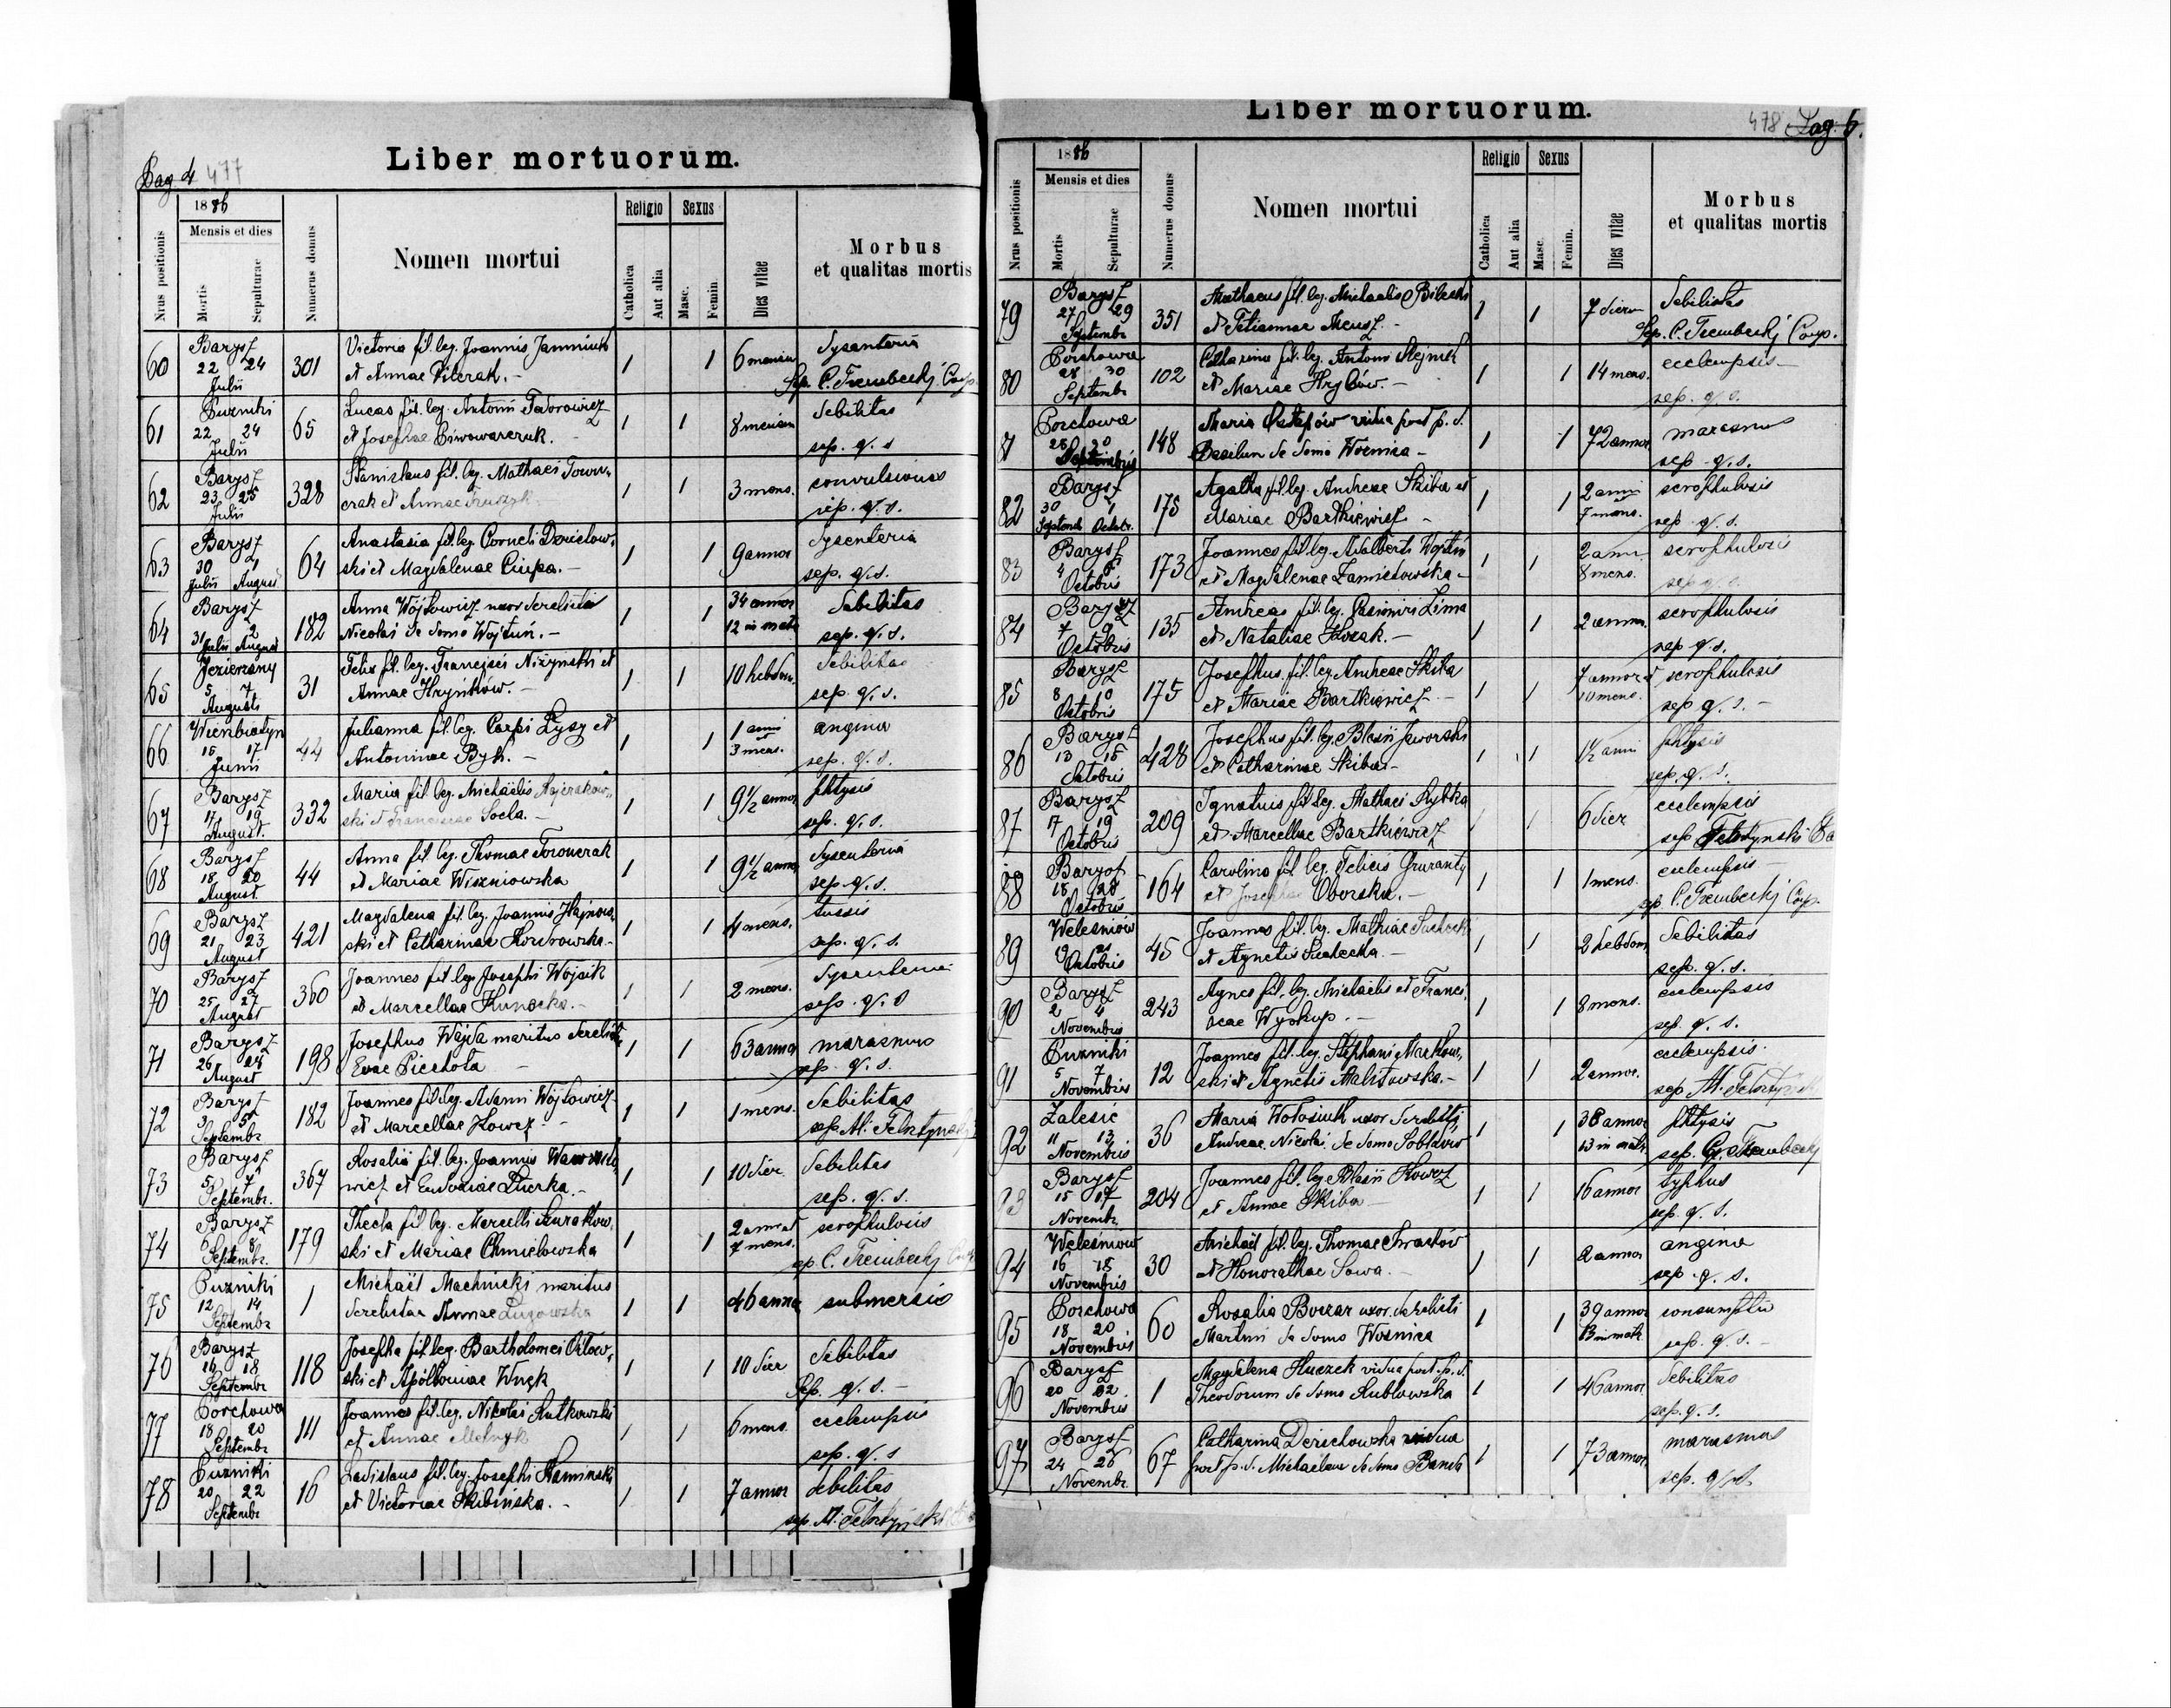 Liber mortuorum.
Pag 4 477
Nrus positionis
1886
Mensis et dies
Mortis
Sepulturae
Numerus domus
Nomen mortui
Religio
Catholica
Aut alia
Sexus
Masc.
Femin.
Dies vitae
Morbus
et qualitas mortis
60 Barysz 22 24 Julii 301
Victoria fil. leg. Joannis
et Annae
1 1 6 mensium
Sep. C. Trembecki Coop.
61 Puzniki 22 24 Julii 65
Lucas fil. leg. Antonii Fedorowicz
et Josephae Piwowarczuk.
1 1 8 mensium debilitas
sep. q. s.
62 Barysz 23 25 Julii 328
Stanislaus fil. leg. Mathaei
et Annae
1 1 3 mens. convulsiones
sep. q. s.
63 Barysz 30 1 Julii August 64
Anastasia fil. leg. Corneli Dzieciow,
ski et Magdalenae Ciupa. -
1 1 9 annor dysenteria
sep. q. s.
64 Barysz 31 2 Julii August 182
Anna Wójtowicz uxor derelicta
Nicolai de domo Wojtuń. -
1 1 34 annor 12 in matr debilitas
sep. q. s.
65 Jezierzany 5 7 Augusti 31
Felix fil. leg. Francisci Niżynski et
Annae Hryńków. -
1 1 10 hebdom. debilitas
sep. q. s.
66 15 17 Junii 44
Julianna fil. leg. Carpi Łysy et
Antoninae Byk. -
1 1 1 anni et 3 mens. angina
sep. q. s.
67 Barysz 17 19 August. 332
Maria fil. leg. Michaëlis
ski et Franciscae Socla. -
1 1 9 1/2 annor phtysis
sep. q. s.
68 Barysz 18 20 August. 44
Anna fil. leg. Thomae
et Mariae Wiszniowska
1 1 9 1/2 annor dysenteria
sep. q. s.
69 Barysz 21 23 August 421
Magdalena fil. leg. Joannis Hajnow,
ski et Catharinae
1 1 4 mens. tussis
sep. q. s.
70 Barysz 25 27 August 360
Joannes fil. leg. Josephi Wójcik
et Marcellae Kunecka. -
1 1 2 mens. dysenteria
sep. q. s.
71 Barysz 26 28 August 198
Josephus Wajda maritus derelict.
Evae Piechota -
1 1 63 annor marasmus
sep. q. s.
72 Barysz 3 5 Septembr 182
Joannes fil. leg. Adami Wójtowicz
et Marcellae Kowcz -
1 1 1 mens. debilitas
sep. M. Felsztyński
73 Barysz 5 7 Septembr. 367
Rosalia fil. leg. Joannis
wicz et Eudoxiae
1 1 10 dier. debilitas
sep. q. s.
74 Barysz 6 8 Septembr. 179
Thecla fil. leg. Marcelli Szurakow,
ski et Mariae Chmielowska
1 1 2 ann et 7 mens. scrophulosis
sep C. Trembecki Coop
75 Puzniki 12 14 Septembr 1
Michaël Machnicki maritus
derelictae Annae Łuzowska
1 1 46 annor submersio
76 Barysz 16 18 Septembr 118
Josepha fil. leg. Bartholomei Orłow,
ski et Apolloniae Wnęk
1 1 10 dier debilitas
Sep. q. s. -
77 Porchowa 18 20 Septembr 111
Joannes fil. leg. Nicolai Rutkowski
et Annae Melnyk
1 1 6 mens. ecclempsis
sep. q. s
78 Puzniki 20 22 Septembr 16
Ladislaus fil. leg. Josephi Kaminski
et Victoriae Skibińska. -
1 1 7 annor debilitas
sep. M. Felsztyński
Liber mortuorum.
478 Pag. 5.
Nrus positionis
1886
Mensis et dies
Mortis
Sepulturae
Numerus domus
Nomen mortui
Religio
Catholica
Aut alia
Sexus
Masc.
Femin.
Dies vitae
Morbus
et qualitas mortis
79 Barysz 27 29 Septembr 351
Mathaeus fil. leg. Michaelis Bilecki
et Tatiannae
1 1 7 dierum debilitas
Sep. C. Trembecki Coop.
80 Porchowa 28 30 Septembr 102
Catharina fil. leg. Antoni Olejnik
et Mariae Hryców. -
1 1 14 mens. ecclempsis -
sep. q. s.
81 Porchowa 28 30 Septembris 148
Maria Ostapów vidua post p. d.
Basilium de domo Woźnica -
1 1 72 annor marasmus
sep. q. s.
82 Barysz 30 1 Septemb Octobr. 175
Agatha fil. leg. Andreae Skiba et
Mariae Bartkiewicz -
1 1 2 anni 7 mens. scrophulosis
sep. q. s.
83 Barysz 4 6 Octobris 173
Joannes fil. leg. Adalberti Wojtuń
et Magdalenae
1 1 2 ann 8 mens. scrophulosis
sep q. s.
84 Barysz 7 9 Octobris 135
Andreas fil. leg. Casimiri Zima
et Nataliae Kozak. -
1 1 2 annor. scrophulosis
sep q. s.
85 Barysz 8 10 Octobris 175
Josephus fil. leg. Andreae Skiba
et Mariae Bartkiewicz -
1 1 7 annor et 10 mens. scrophulosis
sep q. s. -
86 Barysz 13 15 Octobris 428
Josephus fil. leg. Blasii Jaworski
et Catharinae Skiba. -
1 1 1 1/2 anni phtysis
sep. q. s.
87 Barysz 17 19 Octobris 209
Ignatius fil. leg. Mathaei Rybka
et Marcellae Bartkiewicz
1 1 6 dier ecclempsis
sep Felsztyński
88 Barysz 18 20 Octobris 164
Carolina fil. leg. Felicis
et Josephae Oborska. -
1 1 1 mens. ecclempsis -
sep. C. Trembecki Coop.
89 Weleśniów Octobris 45
Joannes fil. leg. Mathiae Suchecki
et Agnetis Suchecka. -
1 1 2 hebdom debilitas
sep. q. s.
90 Barysz 2 4 Novembris 243
Agnes fil. leg. Michaëlis et Francis,
cae Wyskup. -
1 1 8 mens. ecclempsis
sep. q. s.
91 Puzniki 5 7 Novembris 12
Joannes fil. leg. Stephani Markow,
ski et Agnetis
1 1 2 annor. ecclempsis
sep M. Felsztyński
92 Zalesie 11 13 Novembris 36
Maria Wołosiuk uxor derelicti
Andreae Nicolai de domo
1 1 38 annor 13 in matr. phtysis
sep. C. Trembecki
93 Barysz 15 17 Novembr. 204
Joannes fil. leg. Blasii Kowcz
et Annae Skiba -
1 1 16 annor typhus
sep. q. s.
94 Weleśniów 16 18 Novembris 30
Michaël fil. leg. Thomae
et Honorathae Sowa. -
1 1 2 annor angina
sep. q. s.
95 Porchowa 18 20 Novembris 60
Rosalia uxor derelicti
Martini de domo Woźnica
1 1 39 annor 13 in matr. consumptio
sep. q. s. -
96 Barysz 20 22 Novembris 1
Magdalena Huczek vidua post p. d.
Theodorum de domo Kublowska
1 1 46 annor debilitas
sep. q. s.
97 Barysz 24 26 Novembr. 67
Catharina Derechowska vidua
post p. d. Michaëlem de domo
1 1 73 annor. marasmus
sep. q. s.